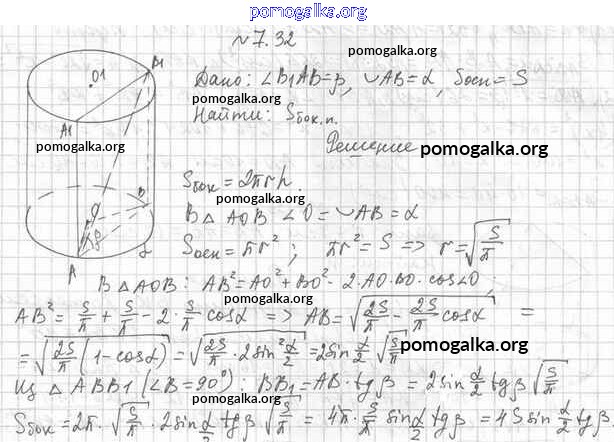 pomogalka.org
№7.32
pomogalka.org
Дано: ∠B1AB=β, ∪AB=α, Sосн=S
pomogalka.org
Найти: Sбок.п.
Решение pomogalka.org
Sбок=2πrh.
pomogalka.org
В △ AOB ∠O=∪AB=α
Sосн=πr²; πr²=S => r=√(S/π)
pomogalka.org
В △AOB: AB²=AO²+BO²-2·AO·BO·cos∠O;
pomogalka.org
AB²=S/π+S/π-2·S/π cosα => AB=√(2S/π-2S/π cosα) =
=√(2S/π(1-cosα))=√(2S/π·2sin²α/2)=2sinα/2√(S/π)
pomogalka.org
Из △ ABB1(∠B=90°): BB1=AB·tgβ=2sinα/2tgβ√(S/π)
pomogalka.org
Sбок=2π·√(S/π)·2sinα/2tgβ√(S/π)=4π·S/π sinα/2tgβ=4Ssinα/2tgβ
O1
B1
A1
pomogalka.org
B
O
β
A
α